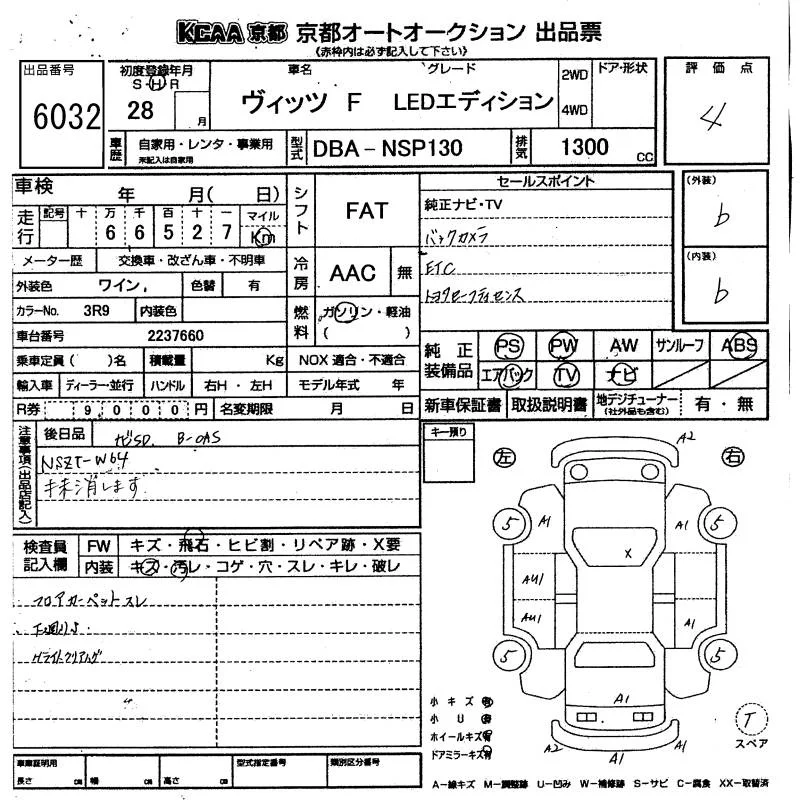 KCAA 京都 京都オートオークション 出品票
(赤枠内は必ず記入して下さい)
出品番号
6032
初度登録年月
S・H・R
28
月
車名
グレード
ヴィッツ F LEDエディション
2WD
4WD
ドア・形状
評価点
4
車歴
自家用・レンタ・事業用
未記入は自家用
型式
DBA-NSP130
排気
1300 CC
車検 年 月( 日)
走行
記号 十 万 千 百 十 一
6 6 5 2 7
マイル
Km
メーター歴
交換車・改ざん車・不明車
外装色 ワイン
色替 有
カラーNo. 3R9
内装色
車台番号 2237660
乗車定員( )名
積載量 Kg
輸入車
ディーラー・並行
ハンドル
右H・左H
R券 9,000円
名変期限 月 日
シフト
FAT
冷房
AAC
無
燃料
ガソリン・軽油
( )
NOX 適合・不適合
モデル年式 年
セールスポイント
純正ナビ・TV
バックカメラ
ETC
(外装)
b
(内装)
b
純正装備品
PS PW AW サンルーフ ABS
エアバック TV ナビ
新車保証書
取扱説明書
地デジチューナー
(社外品も含む)
有・無
注意事項(出品店記入)
後日品
ナビSD. B-CAS
NSZT-W64
抹消します
キー預り
検査員記入欄
FW
キズ・飛石・ヒビ割・リペア跡・X要
内装
キズ・汚レ・コゲ・穴・スレ・キレ・破レ
フロアカーペットスレ
Hライトクリアハゲ
〃
左
右
A2
5
A1
A1
5
X
AU1
AU1
A1
5
5
A1
A2
A1
A1
小キズ 有
小U
ホイールキズ有
ドアミラーキズ有
T
スペア
車庫証明用
長さ cm
幅 cm
高さ cm
型式指定番号
類別区分番号
A-線キズ M-調整跡 U-凹み W-補修跡 S-サビ C-腐食 XX-取替済